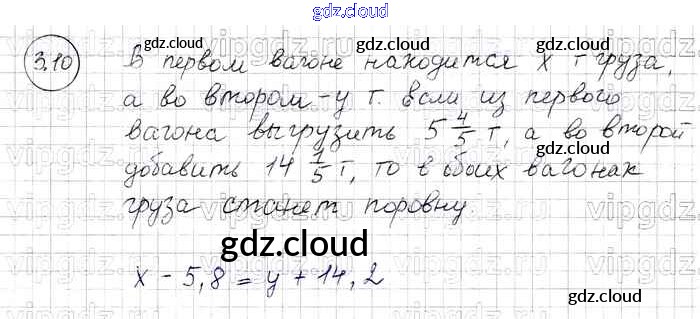 gdz.cloud
3.10 В первом вагоне находится x т груза,
а во втором - y т. Если из первого
вагона выгрузить 5 4/5 т, а во второй
добавить 14 1/5 т, то в обоих вагонах
груза станет поровну.
gdz.cloud
x - 5,8 = y + 14,2